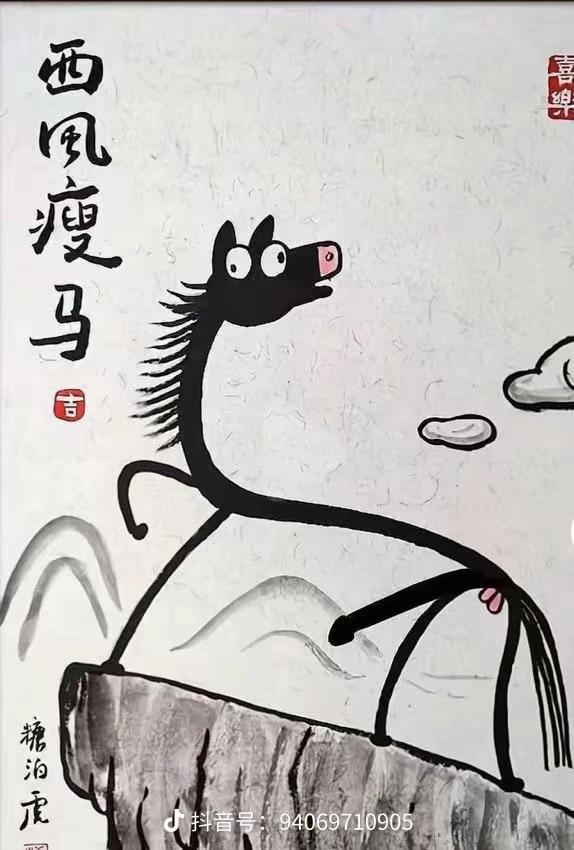 西风瘦马
吉
喜樂
糖泊虎
抖音号：94069710905